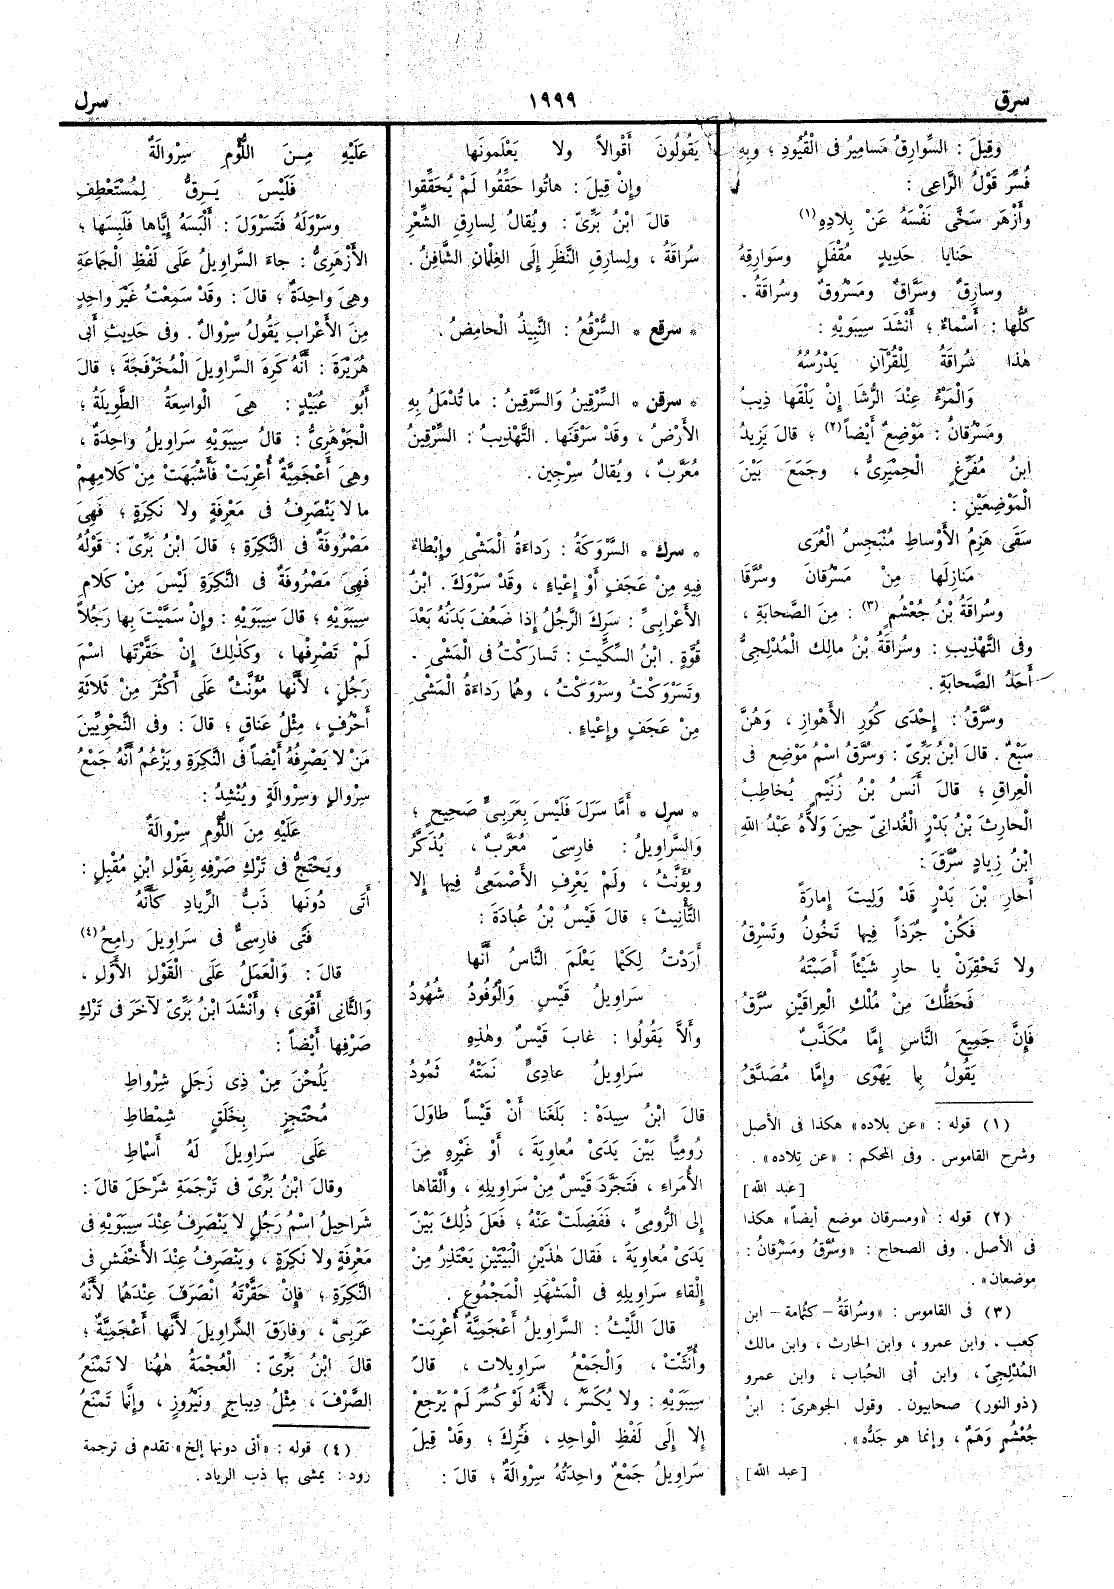 سرق
١٩٩٩
سرل
وَقِيلَ : السَّوارِقُ مَسامِيرُ فى الْقُيُودِ ؛ وبِهِ
فُسِّرَ قَوْلُ الرَّاعِى :
وأَزْهَر سَخَّى نَفْسَهُ عَنْ بِلادِهِ (١)
حَنايا حَدِيدٍ مُقْفَلٍ وسَوارِقهُ
وسارِقٌ وسَرَّاقٌ ومَسْرُوقٌ وسُراقَةُ .
كُلُّها : أَسْماءٌ ؛ أَنْشَدَ سِيبَوَيْهِ :
هٰذا سُراقَةُ لِلْقُرْآنِ يَدْرُسُهُ
وَالْمَرْءُ عِنْدَ الرُّشا إِنْ يَلْقَها ذِيبُ
ومَسْرُقانُ : مَوْضِعٌ أَيْضاً (٢) ؛ قالَ يَزِيدُ
ابنُ مُفَرِّغٍ الْحِمْيَرِىُّ ، وجَمَعَ بَيْنَ
الْمَوْضِعَيْنِ :
سَقَى هَزِمُ الأَوْساطِ مُنْبَجِسُ الْعُرَى
مَنازِلَها مِنْ مَسْرُقانَ وسُرَّقَا
وسُراقَةُ بْنُ جُعْشُمٍ (٣) : مِنَ الصَّحابَةِ ،
وفى التَّهْذِيبِ : وسُراقَةُ بْنُ مالِك الْمُدْلِجِىُّ
أَحَدُ الصَّحابَةِ .
وسُرَّقُ : إِحْدَى كُورِ الأَهْوازِ ، وَهُنَّ
سَبْعٌ . قالَ ابْنُ بَرِّىّ : وسُرَّقُ اسْمُ مَوْضِعٍ فى
الْعِراقِ ؛ قالَ أَنَسُ بْنُ زُنَيْمٍ يُخاطِبُ
الْحارِثَ بْنَ بَدْرٍ الْغُدانِىّ حِينَ وَلاَّهُ عَبْدُ اللهِ
ابْنُ زِيادٍ سُرَّقَ :
أَحارِ بْنَ بَدْرٍ قَدْ وَلِيتَ إِمارَةً
فَكُنْ جُرَذاً فِيها تَخُونُ وتَسْرِقُ
ولا تَحْقِرَنْ يا حارِ شَيْئاً أَصَبْتَهُ
فَحَظُّكَ مِنْ مُلْكِ الْعِراقَيْنِ سُرَّقُ
فَإِنَّ جَمِيعَ النَّاسِ إِمَّا مُكَذَّبٌ
يَقُولُ بِما يَهْوَى وإِمَّا مُصَدَّقُ
(١) قوله : «عن بلاده» هكذا فى الأصل
وشرح القاموس . وفى المحكم : «عن تِلاده» .
[ عبد الله ]
(٢) قوله : «ومسرقان موضع أيضاً» هكذا
فى الأصل . وفى الصحاح : «وسُرَّقُ ومَسْرُقانُ :
موضعان» .
(٣) فى القاموس : «وسُراقَةُ – كثُمامة – ابن
كعب ، وابن عمرو ، وابن الحارث ، وابن مالك
المُدْلِجِىّ ، وابن أبى الحُباب ، وابن عمرو
(ذو النور) صحابيون . وقول الجوهرىّ : ابنُ
جُعْشُمٍ وَهَمٌ ، وإنما هو جَدُّه» .
[ عبد الله ]
يَقُولُونَ أَقْوالاً ولا يَعْلَمونَها
وإِنْ قِيلَ : هاتُوا حَقِّقُوا لَمْ يُحَقِّقُوا
قالَ ابْنُ بَرِّىّ : ويُقالُ لِسارِقِ الشِّعْرِ
سُراقَةُ ، ولِسارِقِ النَّظَرِ إِلَى الغِلْمانِ الشَّافِنُ .
* سرقع * السُّرْقُعُ : النَّبِيذُ الْحامِضُ .
* سرقن * السِّرْقِينُ وَالسَّرْقِينُ : ما تُدْمَلُ بِهِ
الأَرْضُ ، وقَدْ سَرْقَنَها . التَّهْذِيبُ : السِّرْقِينُ
مُعَرَّبٌ ، ويُقالُ سِرْجِين .
* سرك * السَّرْوَكَةُ : رَداءَةُ الْمَشْىِ وإِبْطاءٌ
فِيهِ مِنْ عَجَفٍ أَوْ إِعْياءٍ ، وقَدْ سَرْوَكَ . ابْنُ
الأَعْرابِىِّ : سَرِكَ الرَّجُلُ إِذا ضَعُفَ بَدَنُهُ بَعْدَ
قُوَّةٍ . ابْنُ السِّكِّيتِ : تَسارَكْتُ فى الْمَشْىِ .
وتَسَرْوَكْتُ وسَرْوَكْتُ ، وهُما رَداءَةُ الْمَشْىِ
مِنْ عَجَفٍ وإِعْياءٍ .
* سرل * أَمَّا سَرَلَ فَلَيْسَ بِعَرَبِىٍّ صَحِيحٍ ؛
وَالسَّراوِيلُ : فارِسِىٌّ مُعَرَّبٌ ، يُذَكَّرُ
ويُؤَنَّثُ ، ولَمْ يَعْرِفِ الأَصْمَعِىُّ فِيها إِلا
التَّأْنِيثَ ؛ قالَ قَيْسُ بْنُ عُبادَةَ :
أَرَدْتُ لِكَيْما يَعْلَمَ النَّاسُ أَنَّها
سَراوِيلُ قَيْسٍ وَالْوُفُودُ شُهُودُ
وأَلاَّ يَقُولُوا : غابَ قَيْسٌ وهٰذِهِ
سَراوِيلُ عادِىٍّ نَمَتْهُ ثَمُودُ
قالَ ابْنُ سِيدَهْ : بَلَغَنا أَنَّ قَيْساً طاوَلَ
رُومِيًّا بَيْنَ يَدَىْ مُعاوِيَةَ ، أَوْ غَيْرِهِ مِنَ
الأُمَراءِ ، فَتَجَرَّدَ قَيْسٌ مِنْ سَراوِيلِهِ ، وأَلْقاها
إِلى الرُّومِىِّ ، فَفَضِلَتْ عَنْهُ ؛ فَعَلَ ذٰلِكَ بَيْنَ
يَدَىْ مُعاوِيَةَ ، فَقالَ هٰذَيْنِ الْبَيْتَيْنِ يَعْتَذِرُ مِنْ
إِلْقاءِ سَراوِيلِهِ فى الْمَشْهَدِ الْمَجْمُوعِ .
قالَ اللَّيْثُ : السَّراوِيلُ أَعْجَمِيَّةٌ أُعْرِبَتْ
وأُنِّثَتْ ، وَالْجَمْعُ سَراوِيلات ، قالَ
سِيبَوَيْهِ : ولا يُكَسَّرُ ، لأَنَّهُ لَوْ كُسِّرَ لَمْ يَرْجِعْ
إِلا إِلَى لَفْظِ الْواحِدِ ، فَتُرِكَ ؛ وقَدْ قِيلَ
سَراوِيلُ جَمْعٌ واحِدَتُهُ سِرْوالَةٌ ؛ قالَ :
عَلَيْهِ مِـنَ اللُّؤْمِ سِرْوالَةٌ
فَلَيْسَ يَـرِقُّ لِمُسْتَعْطِفِ
وسَرْوَلَهُ فَتَسَرْوَلَ : أَلْبَسَهُ إِيَّاها فَلَبِسَها ؛
الأَزْهَرِىُّ : جاءَ السَّراوِيلُ عَلَى لَفْظِ الْجَماعَةِ
وهِىَ واحِدَةٌ ؛ قالَ : وقَدْ سَمِعْتُ غَيْرَ واحِدٍ
مِنَ الأَعْرابِ يَقُولُ سِرْوالٌ . وفى حَدِيثِ أَبى
هُرَيْرَةَ : أَنَّهُ كَرِهَ السَّراوِيلَ الْمُخَرْفَجَةَ ؛ قالَ
أَبُو عُبَيْدٍ : هِىَ الْواسِعَةُ الطَّوِيلَةُ ؛
الْجَوْهَرِىُّ : قالَ سِيبَوَيْهِ سَراوِيلُ واحِدَةٌ ،
وهِىَ أَعْجَمِيَّةٌ أُعْرِبَتْ فَأَشْبَهَتْ مِنْ كَلامِهِمْ
ما لا يَنْصَرِفُ فى مَعْرِفَةٍ ولا نَكِرَةٍ ؛ فَهِىَ
مَصْرُوفَةٌ فى النَّكِرَةِ ؛ قالَ ابْنُ بَرِّىّ : قَوْلُهُ
فَهِىَ مَصْرُوفَةٌ فى النَّكِرَةِ لَيْسَ مِنْ كَلامِ
سِيبَوَيْهِ ؛ قالَ سِيبَوَيْهِ : وإِنْ سَمَّيْتَ بِها رَجُلاً
لَمْ تَصْرِفْها ، وكَذٰلِكَ إِنْ حَقَّرْتَها اسْمَ
رَجُلٍ ، لأَنَّها مُؤَنَّثٌ عَلَى أَكْثَرَ مِنْ ثَلاثَةِ
أَحْرُفٍ ، مِثْلُ عَناقٍ ؛ قالَ : وفى النَّحْوِيِّينَ
مَنْ لا يَصْرِفُهُ أَيْضاً فى النَّكِرَةِ ويَزْعُمُ أَنَّهُ جَمْعُ
سِرْوالٍ وسِرْوالَةٍ ويُنْشِدُ :
عَلَيْهِ مِنَ اللُّؤْمِ سِرْوالَةٌ
ويَحْتَجُّ فى تَرْكِ صَرْفِهِ بِقَوْلِ ابْنِ مُقْبِلٍ :
أَتَى دُونَها ذَبُّ الرِّيادِ كَأَنَّهُ
فَتًى فارِسِىٌّ فى سَراوِيلَ رامِحُ (٤)
قالَ : وَالْعَمَلُ عَلَى الْقَوْلِ الأَوَّلِ ،
وَالثَّانِى أَقْوَى ؛ وأَنْشَدَ ابْنُ بَرِّىّ لآخَرَ فى تَرْكِ
صَرْفِها أَيْضاً :
يَلُحْنَ مِنْ ذِى زَجَلٍ شِرْواطِ
مُحْتَجِزٍ بِخَلَقٍ شِمْطاطِ
عَلَى سَراوِيلَ لَهُ أَسْماطِ
وقالَ ابْنُ بَرِّىّ فى تَرْجَمَةِ شَرْحَلَ قالَ :
شَراحِيلُ اسْمُ رَجُلٍ لا يَنْصَرِفُ عِنْدَ سِيبَوَيْهِ فى
مَعْرِفَةٍ ولا نَكِرَةٍ ، ويَنْصَرِفُ عِنْدَ الأَخْفَشِ فى
النَّكِرَةِ ؛ فإِنْ حَقَّرْتَهُ انْصَرَفَ عِنْدَهُما لأَنَّهُ
عَرَبِىٌّ ، وفارَقَ السَّراوِيلَ لأَنَّها أَعْجَمِيَّةٌ ؛
قالَ ابْنُ بَرِّىّ : الْعُجْمَةُ هٰهُنا لا تَمْنَعُ
الصَّرْفَ ، مِثْلُ دِيباجٍ ونَيْرُوزٍ ، وإِنَّما تَمْنَعُ
(٤) قوله : «أتى دونها إلخ» تقدم فى ترجمة
رود : يمشى بها ذب الرياد .